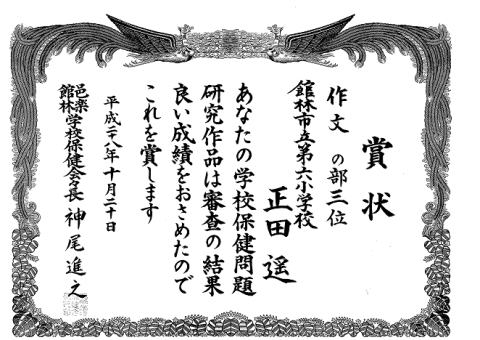 賞状
作文 の部三位
館林市立第六小学校
正田 遥
あなたの学校保健問題
研究作品は審査の結果
良い成績をおさめたので
これを賞します
平成二八年十月二十日
邑楽
館林学校保健会長 神尾進之